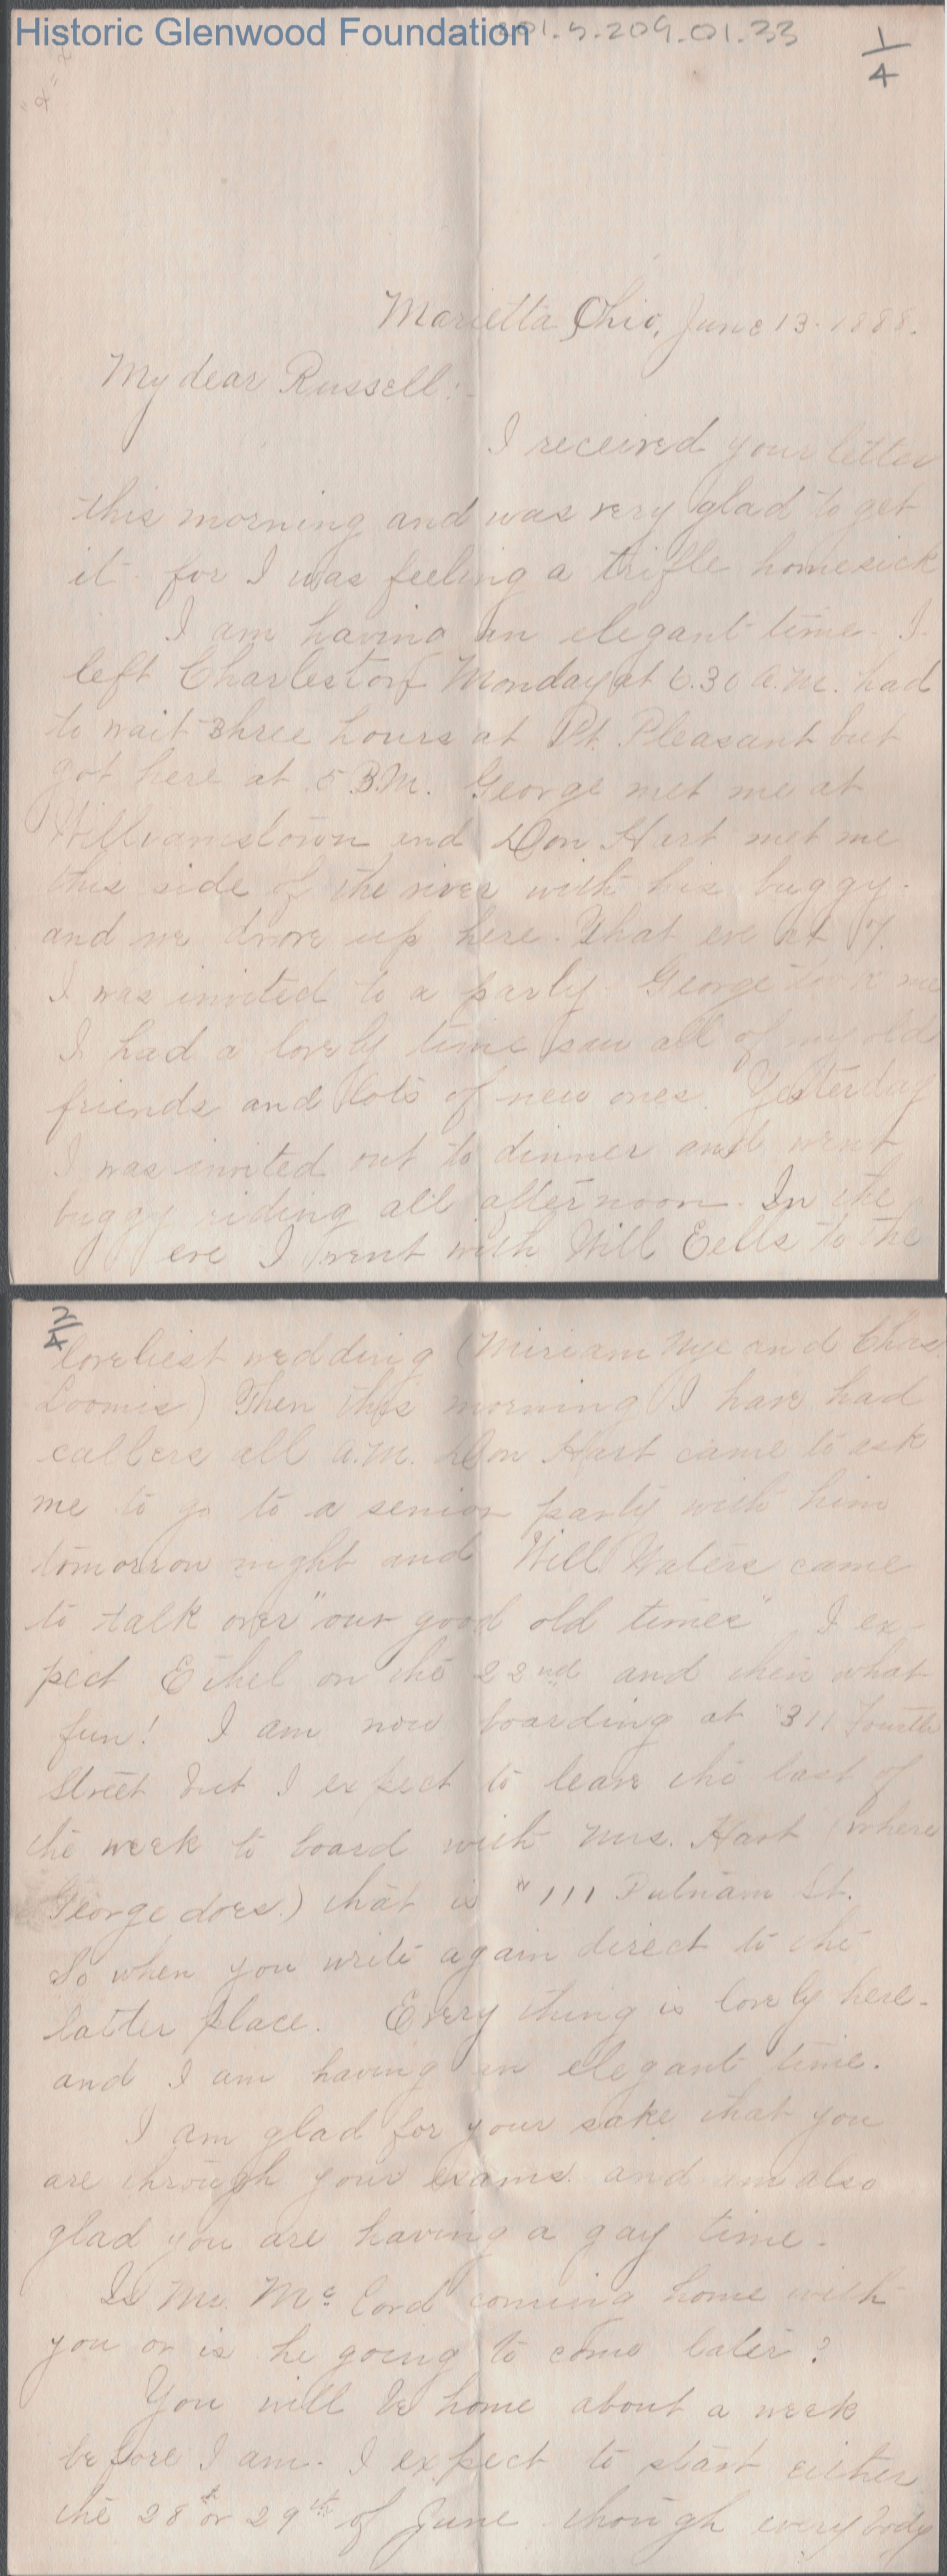 Historic Glenwood Foundation
201.5.209.01.33
1/4
Marietta Ohio, June 13. 1888.
My dear Russell:-
I received your letter
this morning and was very glad to get
it for I was feeling a trifle homesick
I am having an elegant time. I
left Charleston Monday at 6.30 A.M. had
to wait three hours at Pt. Pleasant but
got here at 5 P.M. George met me at
Williamstown and Don Hart met me
this side of the river with his buggy.
and we drove up here. That eve at 7
I was invited to a party. George took me
I had a lovely time saw all of my old
friends and lots of new ones. Yesterday
I was invited out to dinner and went
buggy riding all afternoon. In the
eve I went with Will Eells to the
2/4
loveliest wedding (Miriam Nye and Chas.
Loomis) Then this morning I have had
callers all A.M. Don Hart came to ask
me to go to a senior party with him
tomorrow night and Will Waters came
to talk over "our good old times" I ex-
pect Ethel on the 22nd and then what
fun! I am now boarding at 311 Fourth
Street but I expect to leave the last of
the week to board with Mrs. Hart (where
George does.) that is "111 Putnam St.
So when you write again direct to the
latter place. Every thing is lovely here.
and I am having an elegant time.
I am glad for your sake that you
are through your exams. and am also
glad you are having a gay time.
Is Mr. McCord coming home with
you or is he going to come later?
You will be home about a week
before I am. I expect to start either
the 28th or 29th of June though everybody